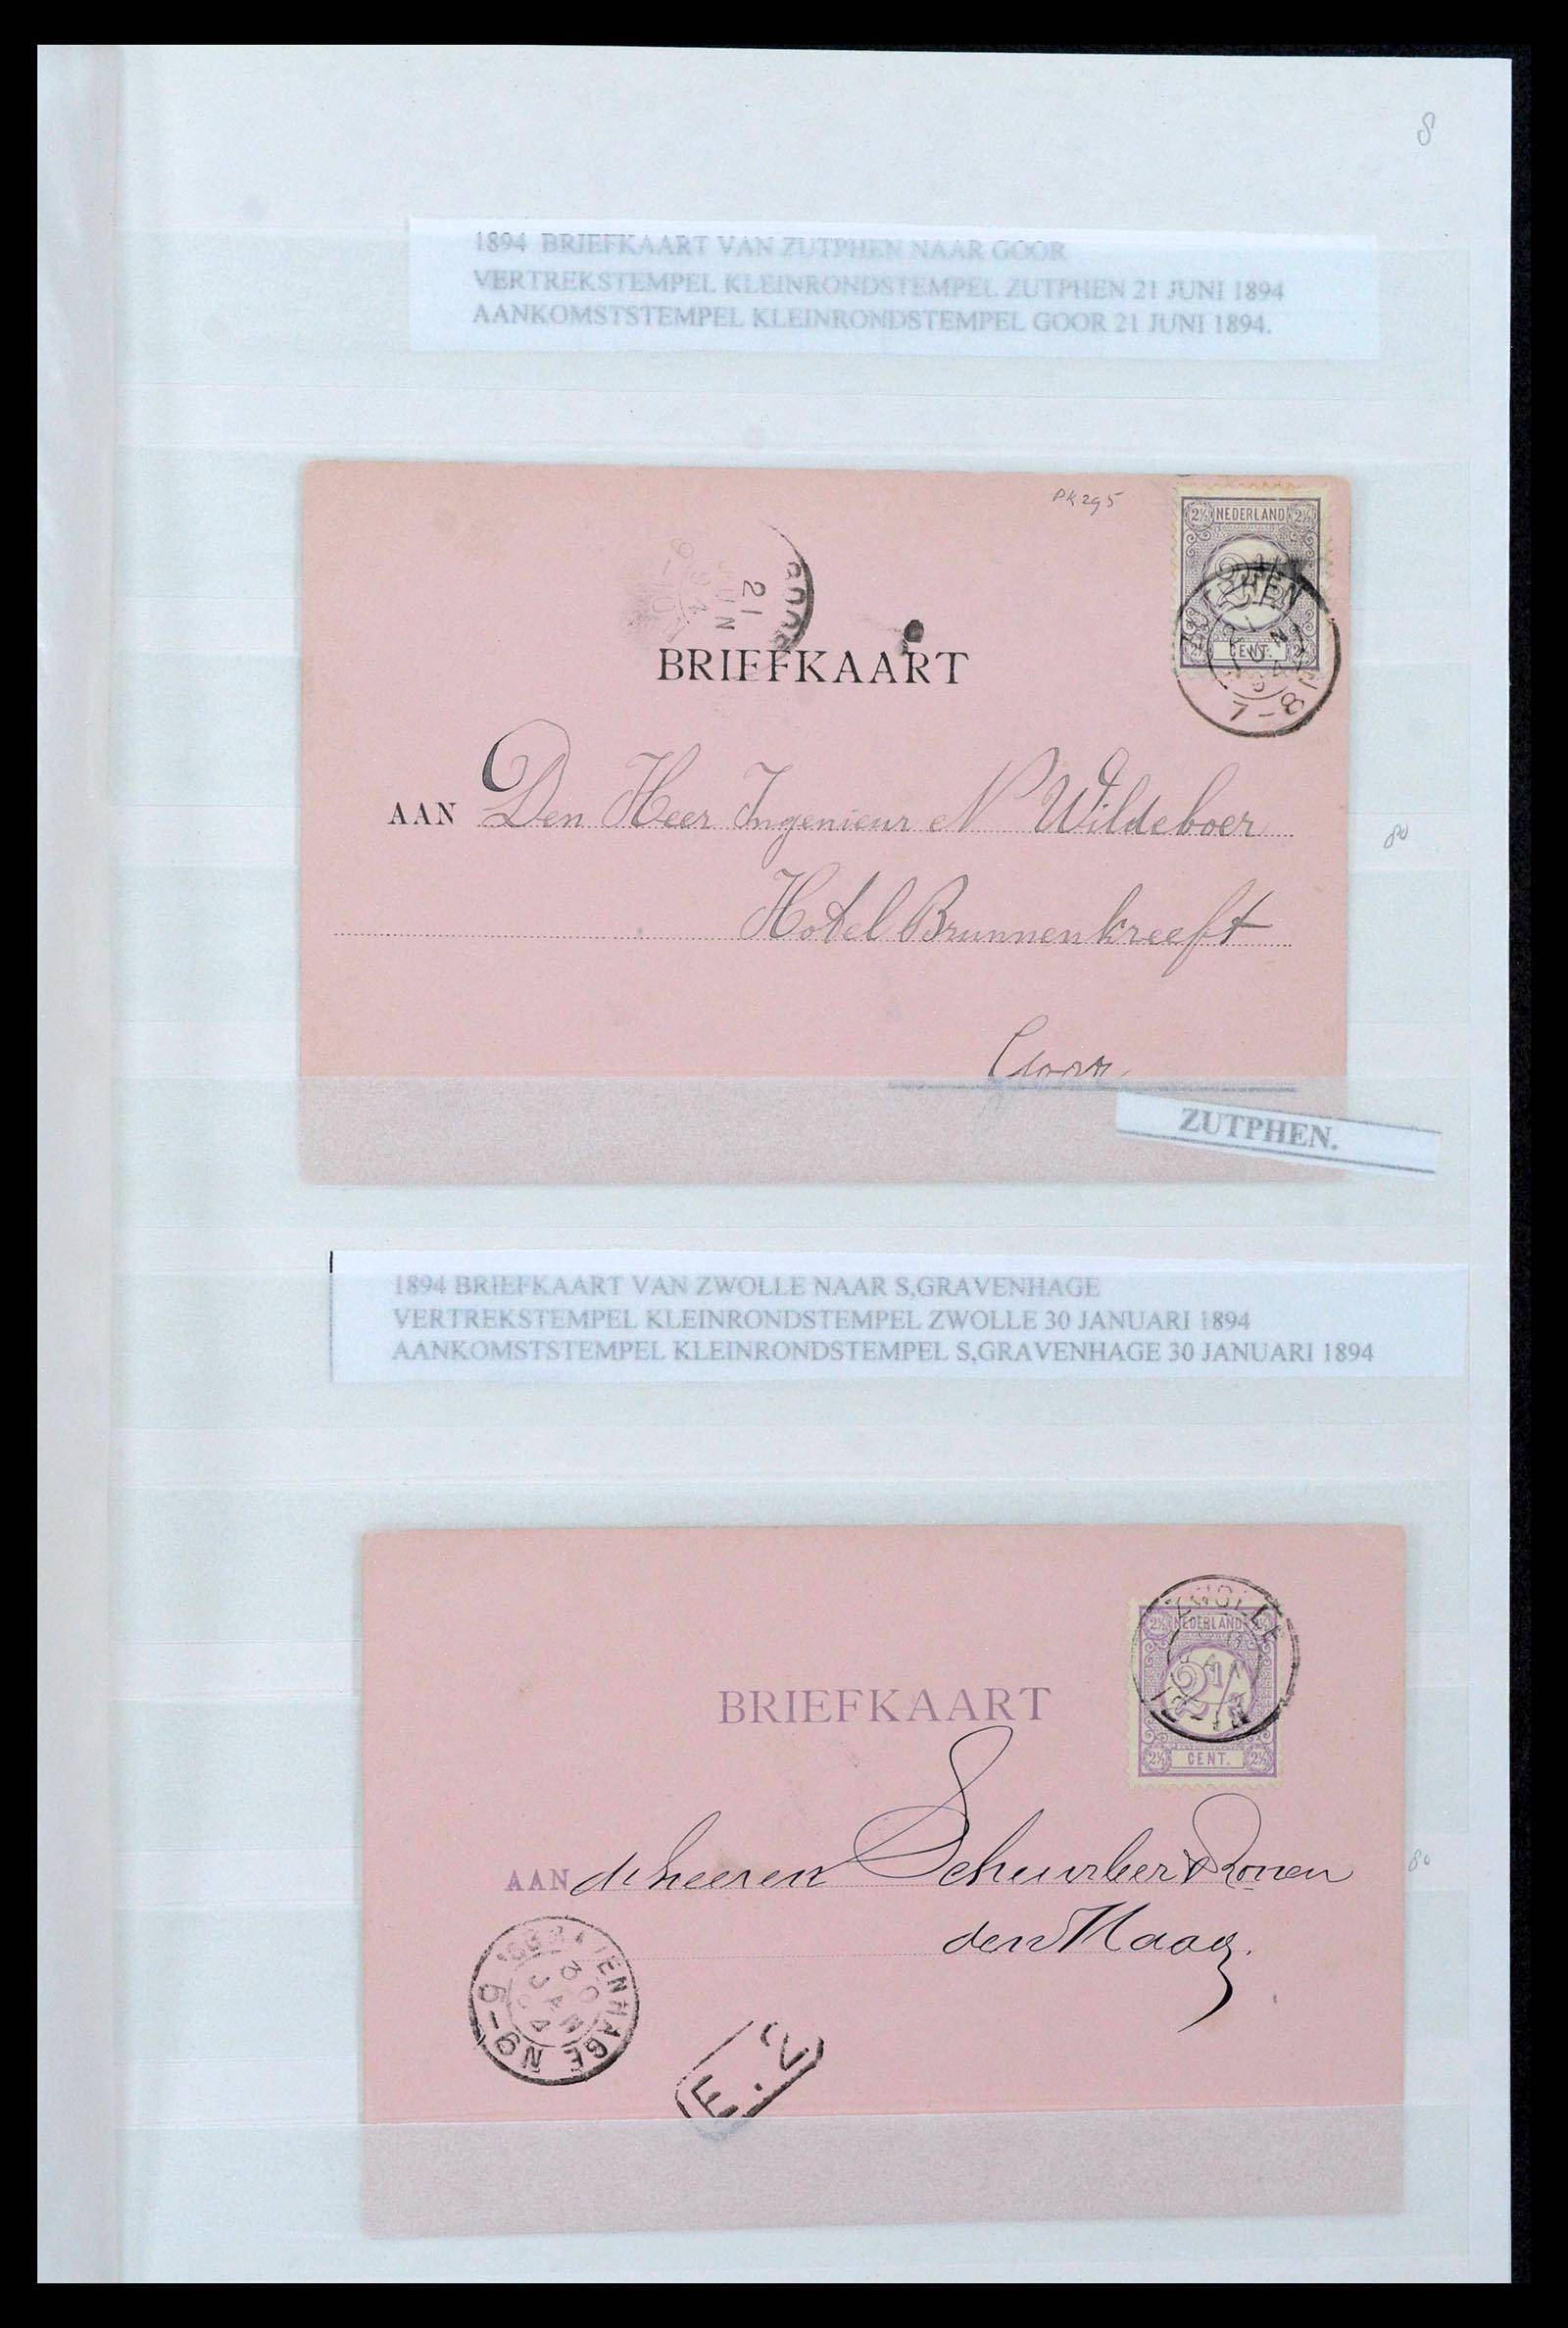 8
1894 BRIEFKAART VAN ZUTPHEN NAAR GOOR
VERTREKSTEMPEL KLEINRONDSTEMPEL ZUTPHEN 21 JUNI 1894
AANKOMSTSTEMPEL KLEINRONDSTEMPEL GOOR 21 JUNI 1894.
PK295
2½ NEDERLAND 2½
2½ CENT. 2½
7-8
21
BRIEFKAART
AAN Den Heer Ingenieur N Wildeboer
80
Hotel Brunnenkreeft
Goor
ZUTPHEN.
1894 BRIEFKAART VAN ZWOLLE NAAR S,GRAVENHAGE
VERTREKSTEMPEL KLEINRONDSTEMPEL ZWOLLE 30 JANUARI 1894
AANKOMSTSTEMPEL KLEINRONDSTEMPEL S,GRAVENHAGE 30 JANUARI 1894
ZWOLLE
NEDERLAND
2½
2½ CENT. 2½
BRIEFKAART
AAN de heeren Scheurleer & Zonen
80
den Haag.
30
JAN
94
E.V